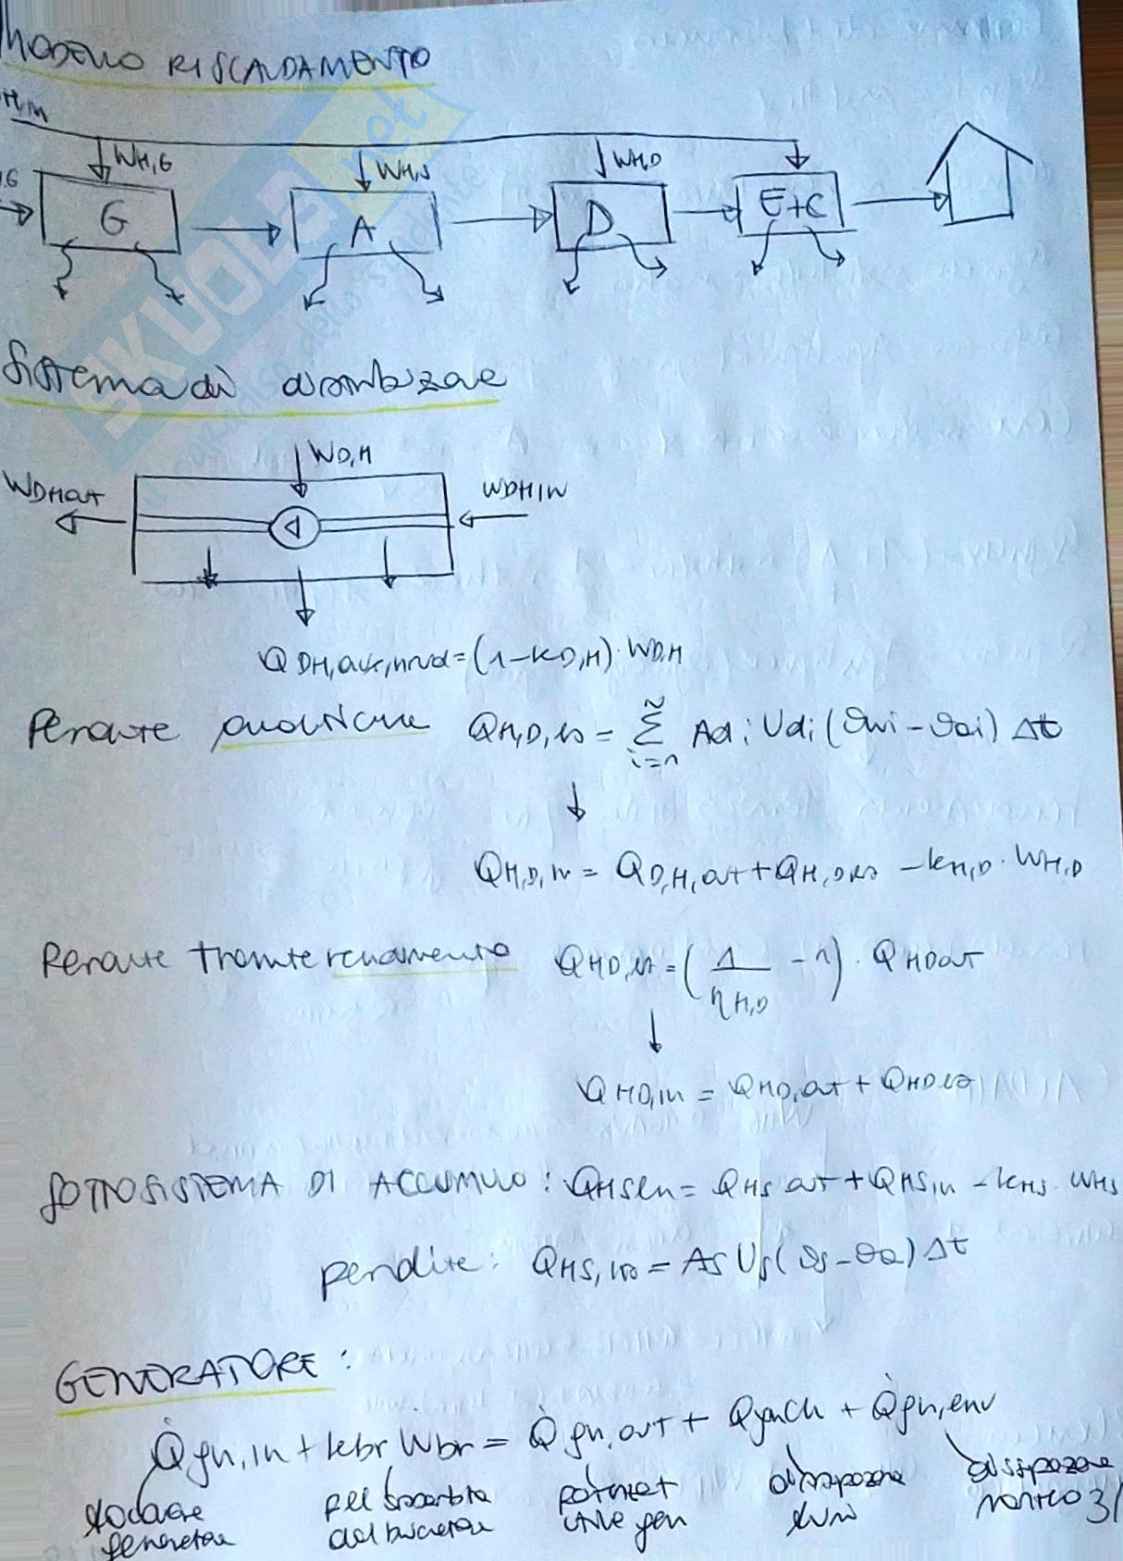 MODELLO RISCALDAMENTO
H,M
WH,G
WH,S
WH,D
G
A
D
E+C
Sistema di distribuzione
WD,H
WDHout
WDHIN
QDH,aux,nrvd=(1-kD,H)·WD,H
Perdite analitiche QH,D,ls = Σ i=1 n Adi Udi (ϑwi - ϑai) Δt
↓
QH,D,in = QD,H,out + QH,D,ls - kH,D · WH,D
Perdite tramite rendimento QHD,ls = (1/ηH,D - 1) · QHDout
↓
QHD,in = QHD,out + QHD,ls
SOTTOSISTEMA DI ACCUMULO : QHSin = QHS out + QHS,ln - kHS · WHS
perdite: QHS,ls = As Us (ϑs - ϑa) Δt
GENERATORE :
Q̇gn,in + kbr Wbr = Q̇gn,out + Qgnch + Q̇gn,env
potenza
utile gen
del bruciatore
dissipazione
dissipazione
mantello 31
SKUOLA.net